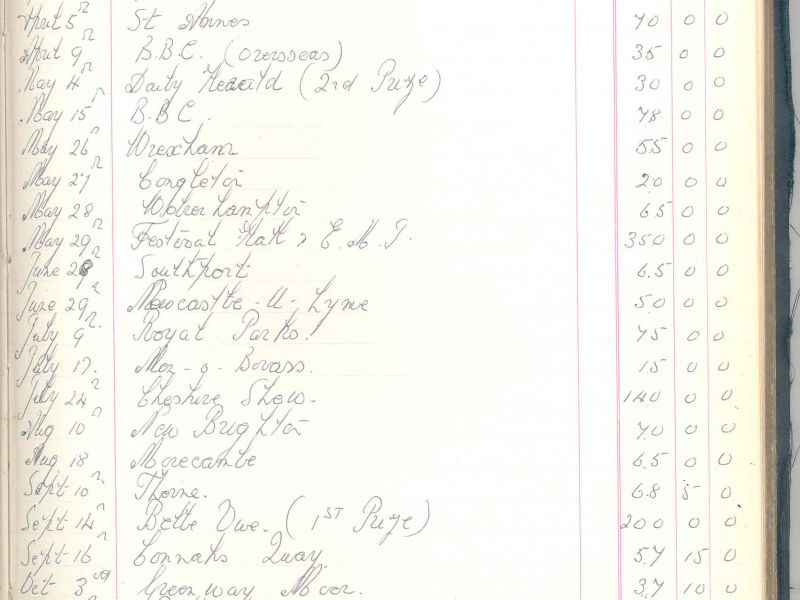 April 5 St Annes 70 0 0
April 9 B.B.C. (Overseas) 35 0 0
May 4 Daily Herald (2nd Prize) 30 0 0
May 15 B.B.C. 78 0 0
May 26 Wrexham 55 0 0
May 27 Congleton 20 0 0
May 28 Wolverhampton 65 0 0
May 29 Festival Hall & E.M.I. 350 0 0
June 28 Southport 65 0 0
June 29 Newcastle-U-Lyme 50 0 0
July 9 Royal Parks. 75 0 0
July 17. 15 0 0
July 24 Cheshire Show. 140 0 0
Aug 10 New Brighton 70 0 0
Aug 18 Morecambe 65 0 0
Sept 10 Thorne. 68 5 0
Sept 14 Belle Vue. (1ST Prize) 200 0 0
Sept 16 Connahs Quay. 57 15 0
Oct 3 Greenway Moor. 37 10 0